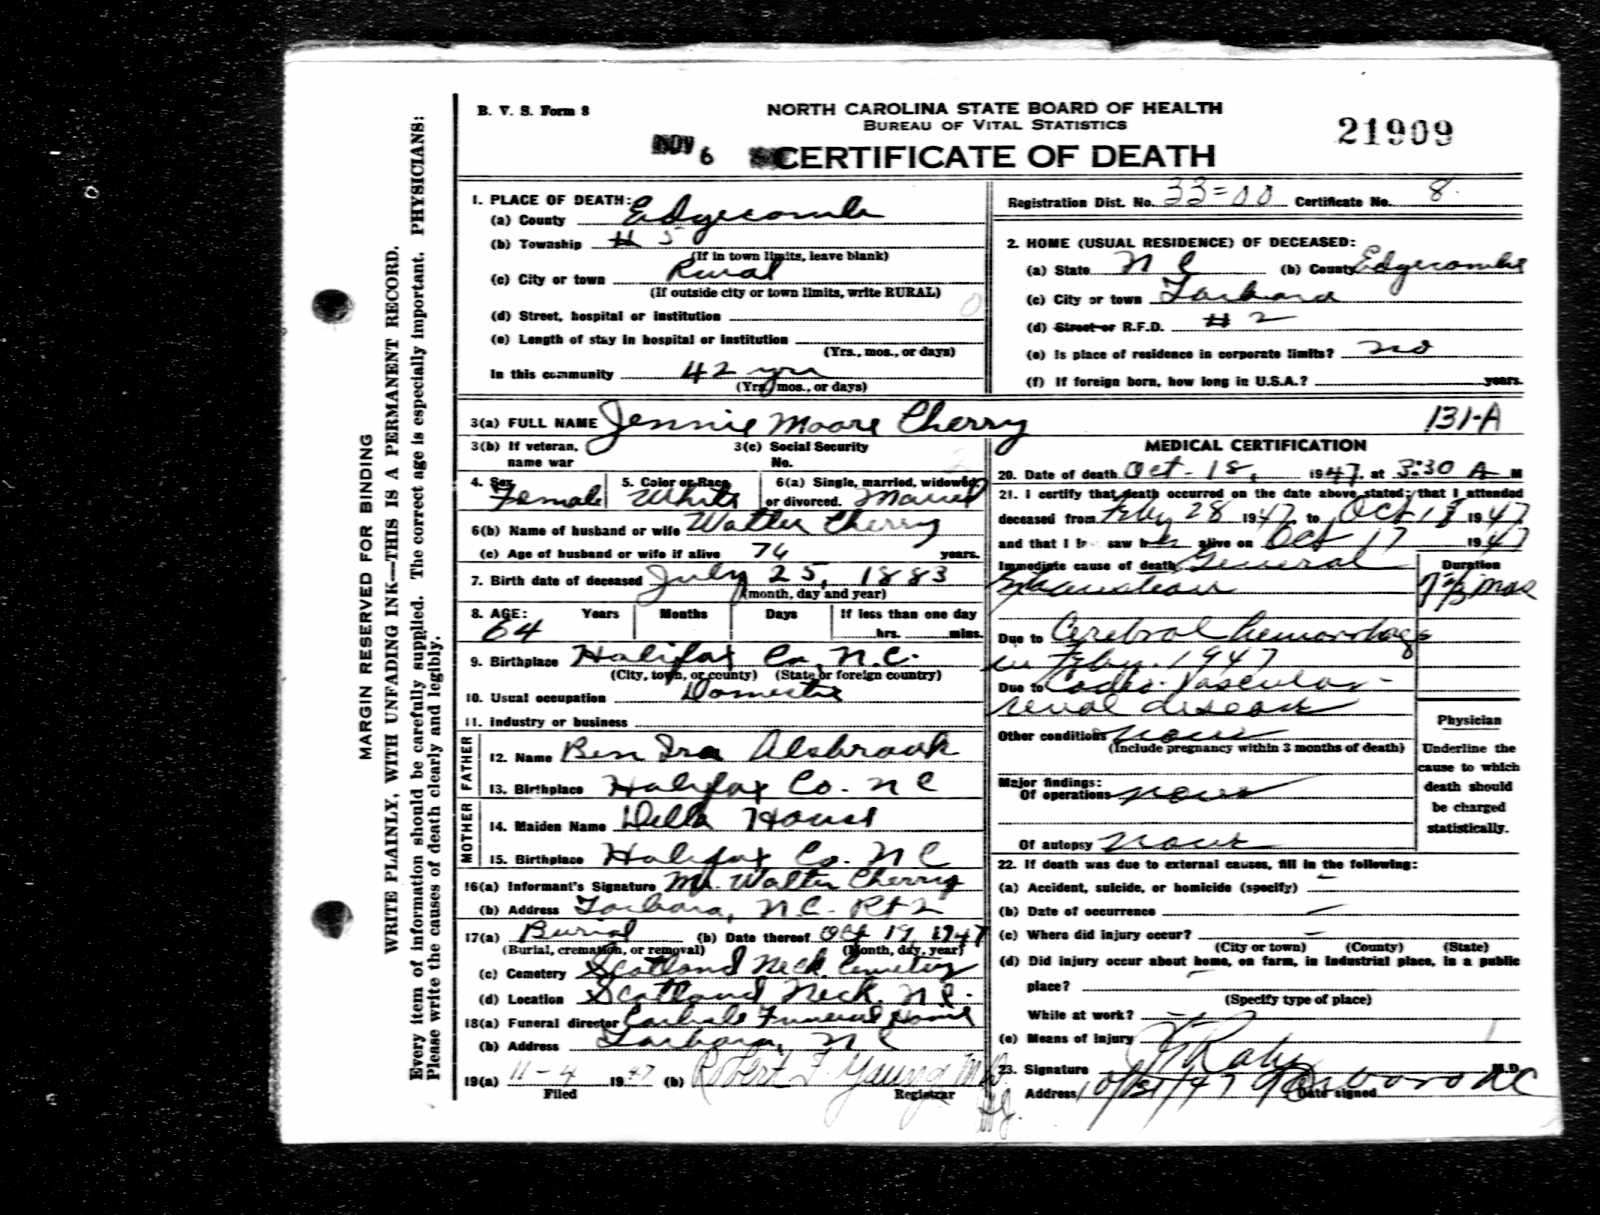 B. V. S. Form 8
NORTH CAROLINA STATE BOARD OF HEALTH
BUREAU OF VITAL STATISTICS
21909
NOV 6
CERTIFICATE OF DEATH
MARGIN RESERVED FOR BINDING
WRITE PLAINLY, WITH UNFADING INK—THIS IS A PERMANENT RECORD.
Every item of information should be carefully supplied. The correct age is especially important. PHYSICIANS:
Please write the causes of death clearly and legibly.
1. PLACE OF DEATH:
(a) County Edgecombe
(b) Township # 5
(If in town limits, leave blank)
(c) City or town Rural
(If outside city or town limits, write RURAL)
(d) Street, hospital or institution
(e) Length of stay in hospital or institution
(Yrs., mos., or days)
In this community 42 yrs
(Yrs., mos., or days)
Registration Dist. No. 33=00 Certificate No. 8
2. HOME (USUAL RESIDENCE) OF DECEASED:
(a) State N C (b) County Edgecombe
(c) City or town Tarboro
(d) Street or R.F.D. # 2
(e) Is place of residence in corporate limits? no
(f) If foreign born, how long in U.S.A.? years.
3(a) FULL NAME Jennie Moore Cherry 131-A
3(b) If veteran, name war
3(c) Social Security No.
4. Sex Female
5. Color or Race White
6(a) Single, married, widowed, or divorced. Married
6(b) Name of husband or wife Walter Cherry
(c) Age of husband or wife if alive 74 years.
7. Birth date of deceased July 25, 1883
(month, day and year)
8. AGE: Years Months Days If less than one day
64 hrs. mins.
9. Birthplace Halifax Co, N.C.
(City, town, or county) (State or foreign country)
10. Usual occupation Domestic
11. Industry or business
FATHER
12. Name Ben Ira Alsbrook
13. Birthplace Halifax Co. N C
MOTHER
14. Maiden Name Della House
15. Birthplace Halifax Co. N C
16(a) Informant's Signature Mr. Walter Cherry
(b) Address Tarboro, N.C. Rt 2
17(a) Burial (b) Date thereof Oct 19 1947
(Burial, cremation, or removal) (Month, day, year)
(c) Cemetery Scotland Neck Cemetery
(d) Location Scotland Neck. N.C.
18(a) Funeral director Carlisle Funeral Home
(b) Address Tarboro, N C
19(a) 11-4 1947 (b) Robert F. Young M.D.
Filed Registrar
MEDICAL CERTIFICATION
20. Date of death Oct-18, 1947, at 3:30 A M
21. I certify that death occurred on the date above stated; that I attended
deceased from Feby 28 1947 to Oct 18 1947
and that I saw her alive on Oct 17 1947
Immediate cause of death General
Exhaustion
Duration
7 1/2 mos
Due to Cerebral hemorrhage
in Feby. 1947
Due to Cadio-Vascular-
renal disease
Other conditions none
(Include pregnancy within 3 months of death)
Major findings:
Of operations none
Of autopsy none
Physician
Underline the
cause to which
death should
be charged
statistically.
22. If death was due to external causes, fill in the following:
(a) Accident, suicide, or homicide (specify) —
(b) Date of occurrence —
(c) Where did injury occur? —
(City or town) (County) (State)
(d) Did injury occur about home, on farm, in industrial place, in a public
place? —
(Specify type of place)
While at work? —
(e) Means of injury
23. Signature Raby M.D.
Address Tarboro NC Date signed 10/31/47